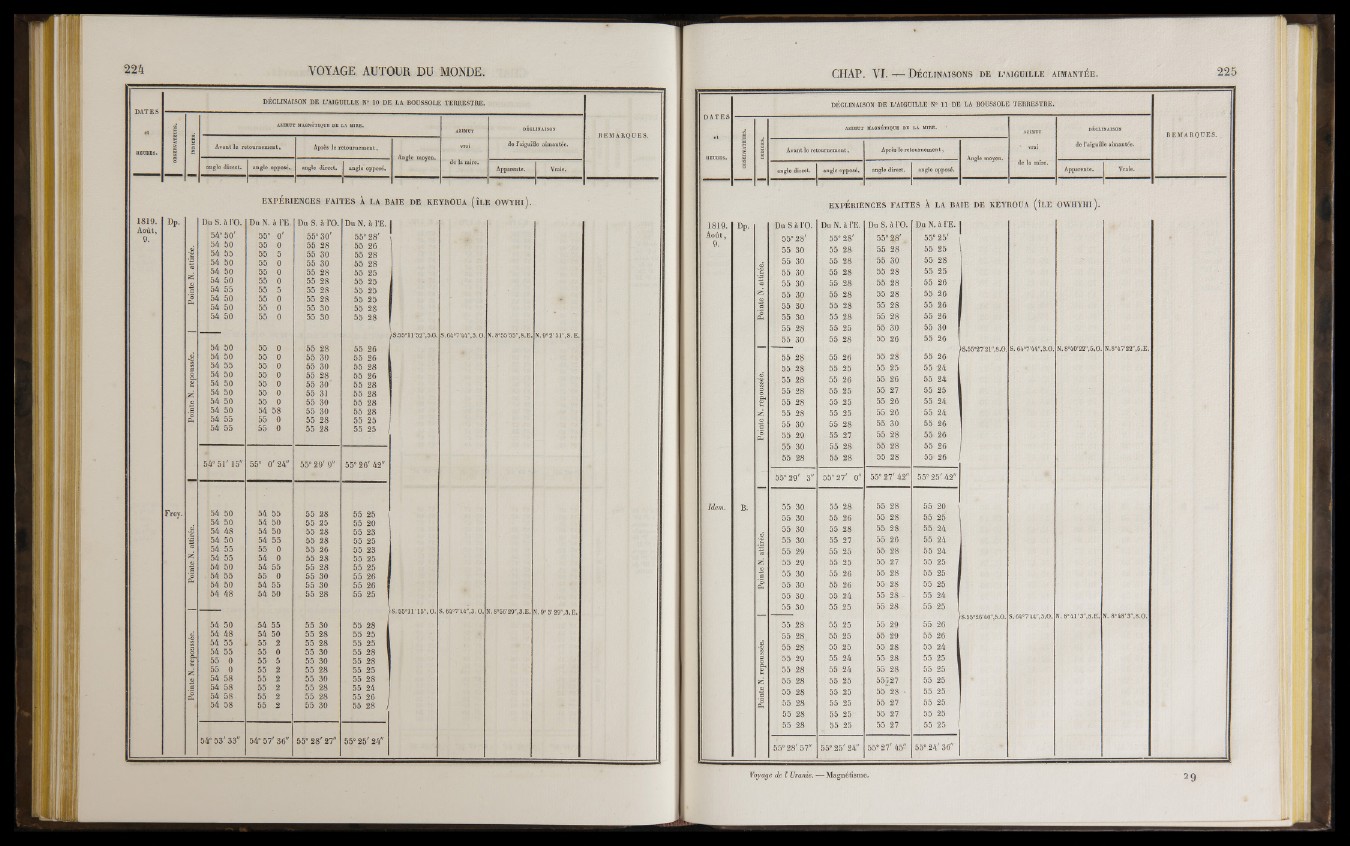 224
VOYAGE AUTOUR DU MONDE.
DÉCLINAISON DE L'AIGUILLE N° 10 DE LA BOUSSOLE TERRESTRE.
DATES et HEURES.
OBSERVATEURS.
INDICES.
AZIMUT MAGNÉTIQUE DE LA MIRE.
Avant le retournement.
Après le retournement.
angle direct.
angle opposé.
angle direct.
angle opposé.
Angle moyen.
AZIMUT vrai de la mire.
DÉCLINAISON de l'aiguille aimantée.
Apparente.
Vraie.
REMARQUES.
EXPÉRIENCES FAITES À LA BAIE DE KEYROUA (ÎLE OWYHI).
1819. Août, 9.
Dp.
Du S. à l'O. Du N. à l'E. Du S. à l'O. Du N. à l'E.
Pointe N. attirée.
54° 50' 55° 0' 55° 30' 55° 28'
54 50 55 0 55 28 55 26
54 55 55 5 55 30 55 28
54 50 55 0 55 30 55 28
54 50 55 0 55 28 55 25
54 50 55 0 55 28 55 25
54 55 55 5 55 28 55 25
54 50 55 0 55 28 55 25
54 50 55 0 55 30 55 28
54 50 55 0 55 30 55 28
Pointe N. repoussée.
54 50 55 0 55 28 55 26
54 50 55 0 55 30 55 26
54 55 55 0 55 30 55 28
54 50 55 0 55 28 55 26
54 50 55 0 55 30 55 28
54 50 55 0 55 31 55 28
54 50 55 0 55 30 55 28
54 50 54 58 55 30 55 28
54 55 55 0 55 28 55 25
54 55 55 0 55 28 55 25
54° 51' 15" 55° 0' 24" 55° 29' 0" 55° 26' 42"
Frey.
Pointe N. attirée.
54 50 54 55 55 28 55 25
54 50 54 50 55 25 55 20
54 48 54 50 55 28 55 23
54 50 54 55 55 28 55 25
54 55 55 0 55 26 55 23
54 55 54 0 55 28 55 25
54 50 54 55 55 28 55 25
54 55 55 0 55 30 55 26
54 50 54 55 55 30 55 26
54 48 54 50 55 28 55 25
Pointe N. repoussée.
54 50 54 55 55 30 55 28
54 48 54 50 55 28 55 25
54 55 55 2 55 28 55 25
54 55 55 0 55 30 55 28
55 0 55 5 55 30 55 28
55 0 55 2 55 28 55 25
54 58 55 2 55 30 55 28
54 58 55 2 55 28 55 24
54 58 55 2 55 28 55 26
54 58 55 2 55 30 55 28
54° 53' 33" 54° 57' 36" 55° 28' 27" 55° 25' 24"
CHAP. VI. — DÉCLINAISONS DE L'AIGUILLE AIMANTÉE.
225
DÉCLINAISON DE L'AIGUILLE N° 11 DE LA BOUSSOLE TERRESTRE.
DATES et HEURES.
OBSERVATEURS.
INDICES.
AZIMUT MAGNÉTIQUE DE LA MIRE.
Avant le retournement.
Après le retournement.
angle direct.
angle opposé.
angle direct.
angle opposé.
Angle moyen.
AZIMUT vrai de la mire.
DÉCLINAISON de l'aiguille aimantée.
Apparente.
Vraie.
REMARQUES.
EXPÉRIENCES FAITES À LA BAIE DE KEYROUA (ÎLE OWHYHI).
1819. Août, 9.
Dp.
Du S à l'O. Du N. à l'E. Du S. à l'O. Du N. à l'E.
Pointe N. attirée.
55° 28' 55° 28' 55° 28' 55° 25'
55 30 55 28 55 28 55 25
55 30 55 28 55 30 55 28
55 30 55 28 55 28 55 25
55 30 55 28 55 28 55 26
55 30 55 28 55 28 55 26
55 30 55 28 55 28 55 26
55 30 55 28 55 28 55 26
55 28 55 25 55 30 55 30
55 30 55 28 55 26 55 26
S.55°27'21",8.O. S. 64°7'44",3.O. N.8°40'22",5.O. N.8°47'22",5.E.
Pointe N. repoussée.
55 28 55 26 55 28 55 26
55 28 55 25 55 25 55 24
55 28 55 26 55 26 55 24
55 28 55 25 55 27 55 25
55 28 55 25 55 26 55 24
55 28 55 25 55 26 55 24
55 30 55 28 55 30 55 26
55 29 55 27 55 28 55 26
55 30 55 28 55 28 55 26
55 28 55 28 55 28 55 26
55° 29' 3" 55° 27' 0" 55° 27' 42" 55° 25' 42"
Idem.
B.
Pointe N. attirée.
55 30 55 28 55 28 55 26
55 30 55 26 55 28 55 25
55 30 55 28 55 28 55 24
55 30 55 27 55 26 55 24
55 29 55 25 55 28 55 24
55 29 55 25 55 27 55 25
55 30 55 26 55 28 55 25
55 30 55 26 55 28 55 25
55 30 55 24 55 28 55 24
55 30 55 25 55 28 55 25
Pointe N. repoussée.
55 28 55 25 55 29 55 26
55 28 55 25 55 29 55 26
55 28 55 25 55 28 55 24
55 29 55 24 55 28 55 25
55 28 55 24 55 28 55 25
55 28 55 25 55 27 55 25
55 28 55 25 55 28 55 25
55 28 55 25 55 27 55 25
55 28 55 25 55 27 55 25
55 28 55 25 55 27 55 25
55° 28' 57" 55° 25' 24" 55° 27' 45" 55° 24' 36"
Voyage de l'Uranie. — Magnétisme.
29